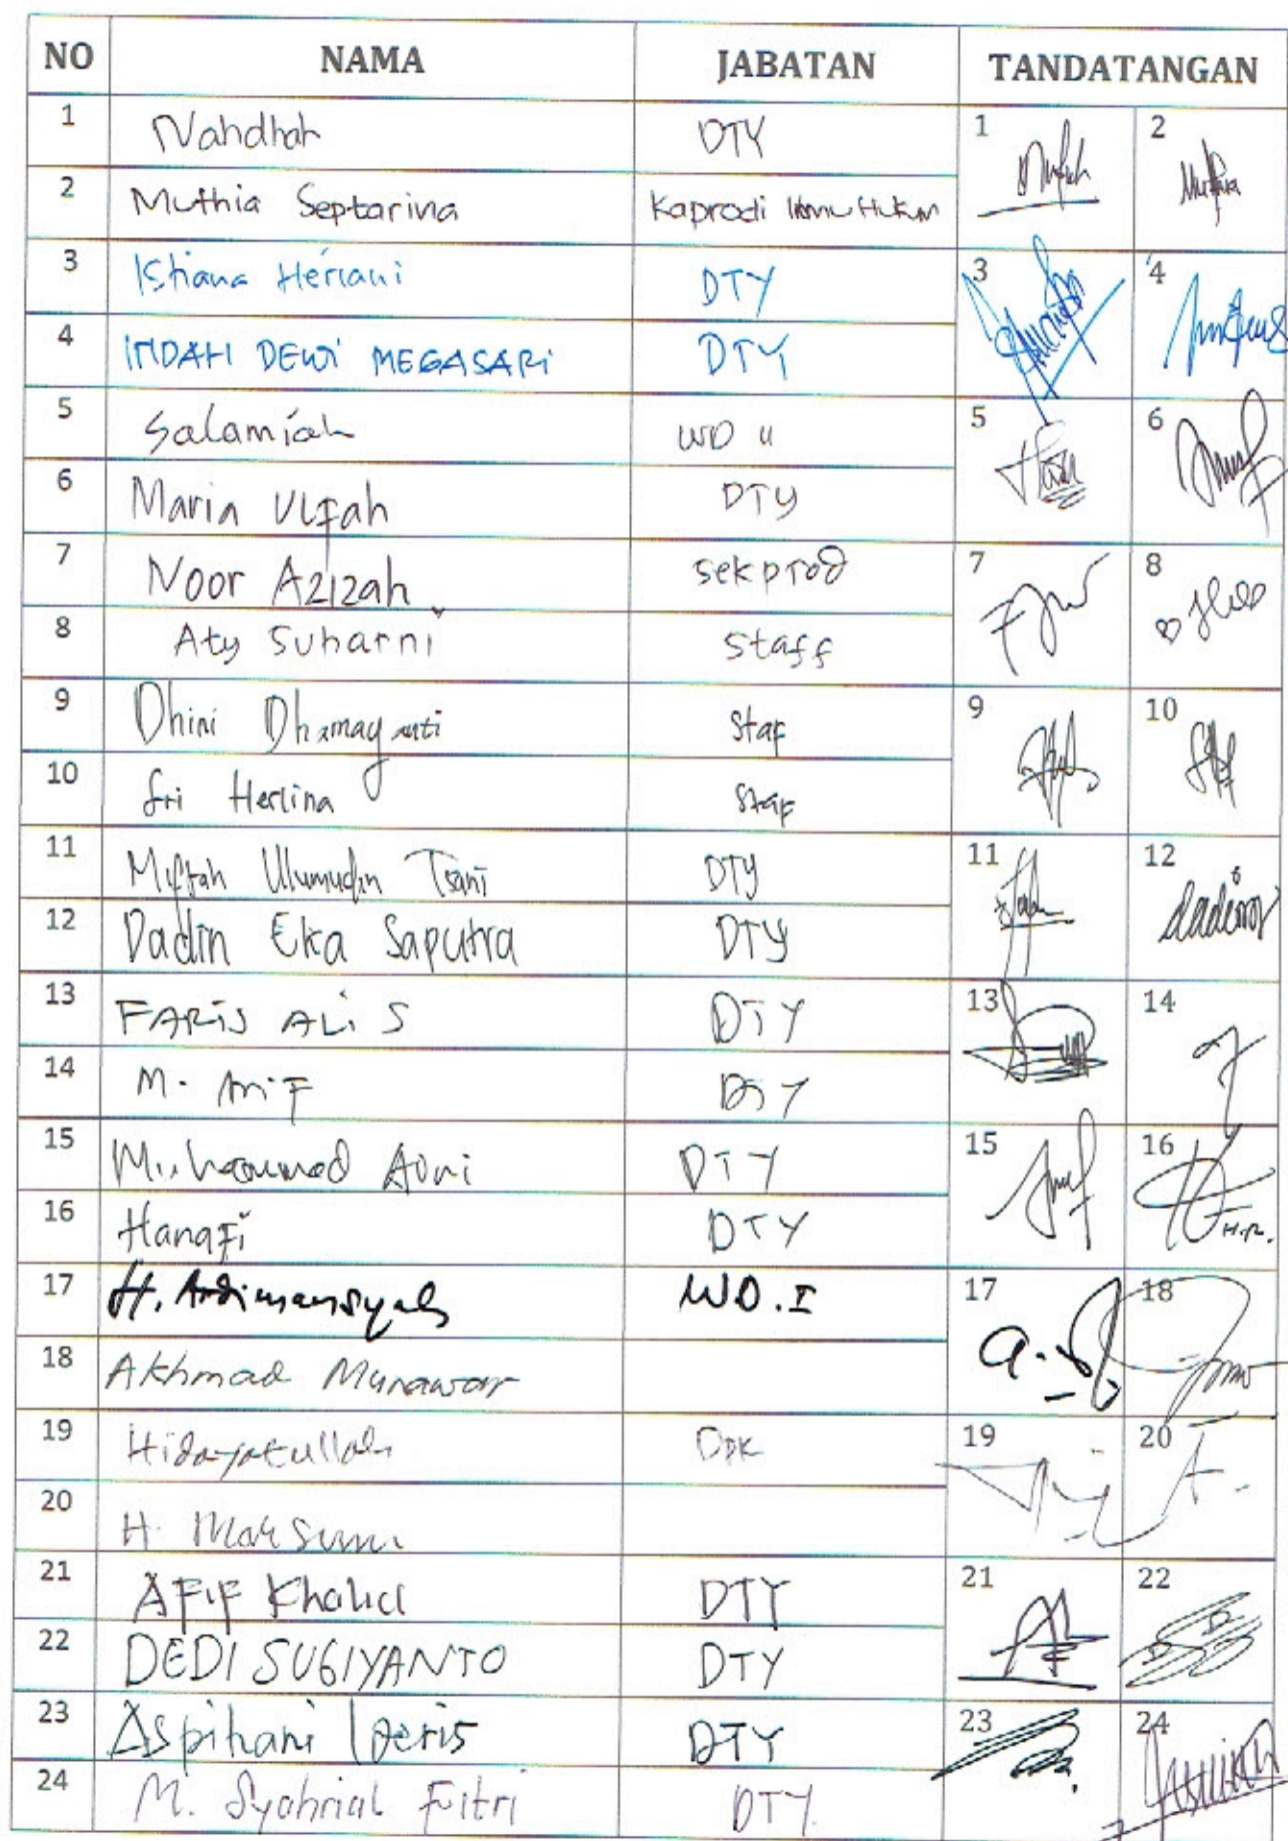 NO NAMA JABATAN TANDATANGAN
1 Nahdhah DTY 1 2
2 Muthia Septarina Kaprodi Ilmu Hukum
3 Istiana Heriani DTY 3 4
4 INDAH DEWI MEGASARI DTY
5 Salamiah WD II 5 6
6 Maria Ulfah DTY
7 Noor Azizah sekprod 7 8
8 Aty Suharni Staff
9 Dhini Dhamayanti Staf 9 10
10 Sri Herlina Staf
11 Miftah Ulumudin Tsani DTY 11 12
12 Dadin Eka Saputra DTY
13 FARIS ALI S DTY 13 14
14 M. Arif DTY
15 Muhammad Aini DTY 15 16
16 Hanafi DTY
17 H. Ardiansyah WD.I 17 18
18 Akhmad Munawar
19 Hidayatullah DPK 19 20
20 H. Marsum
21 AFIF Khalid DTY 21 22
22 DEDI SUGIYANTO DTY
23 Aspihani Ideris DTY 23 24
24 M. Syahrial Fitri DTY